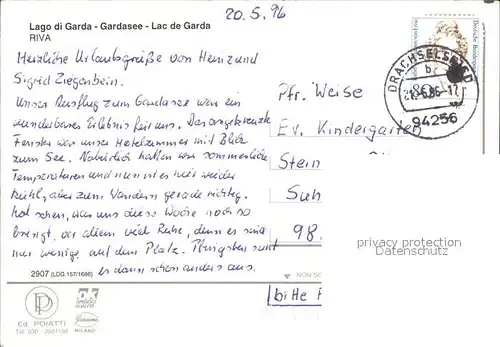 20.5.96
Lago di Garda - Gardasee - Lac de Garda
RIVA
Herzliche Urlaubsgrüße von Heinz und
Sigrid Ziegenbein.
Unser Ausflug zum Gardasee war ein
wunderbares Erlebnis für uns. Das angekreuzte
Fenster war unser Hotelzimmer mit Blick
zum See. Natürlich hatten wir sommerliche
Temperaturen und nun ist es hier wieder
kühl, aber zum Wandern gerade richtig.
mal sehen, was uns diese Woche noch so
bringt, vor allem viel Ruhe, denn es sind
nur wenige auf dem Platz. Pfingsten sieht
es dann schon anders aus.
2907 (LDG 157/1686)
Ed. POIATTI
MILANO
Deutsche Bundespost
DRACHSELSRIED
94256
Pfr. Weise
Ev. Kindergarten
Stein
Suh
98.
NON SC
bitte
privacy protection
Datenschutz